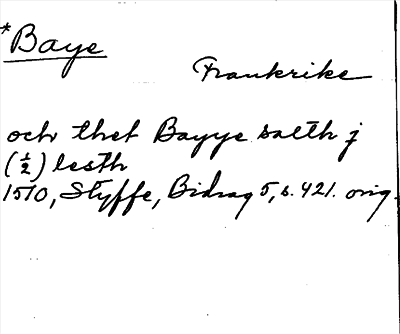 *Baye
Frankrike
och thet Bayye salth j
(½) lesth
1510, Styffe, Bidrag 5, s. 421. orig.